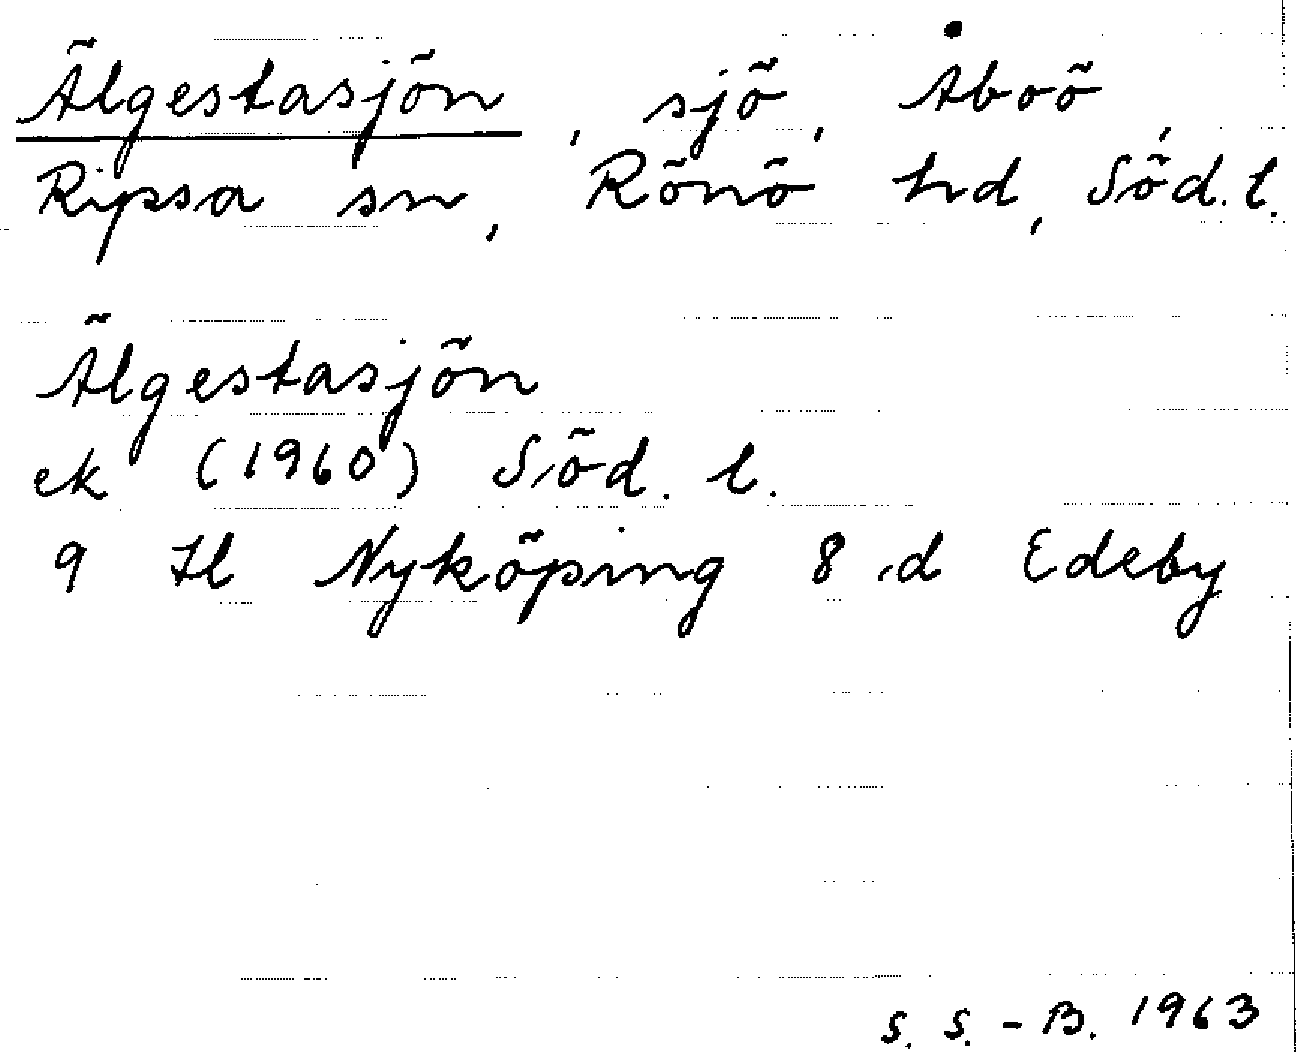 Älgestasjön, sjö, Åboö,
Ripsa sn, Rönö hd, Söd. l.
Älgestasjön
ek (1960) Söd. l.
9 H Nyköping 8 d Edeby
S. S. - B. 1963